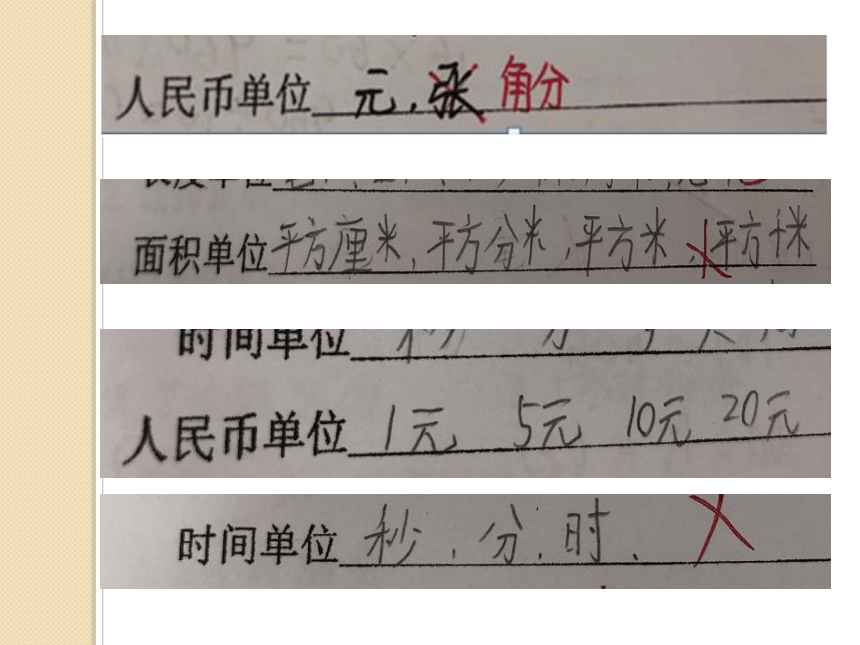 人民币单位 元,张 角分
长度单位
面积单位 平方厘米,平方分米,平方米,平方千米
时间单位 秒 分 时 天 周
人民币单位 1元 5元 10元 20元
时间单位 秒、分、时、